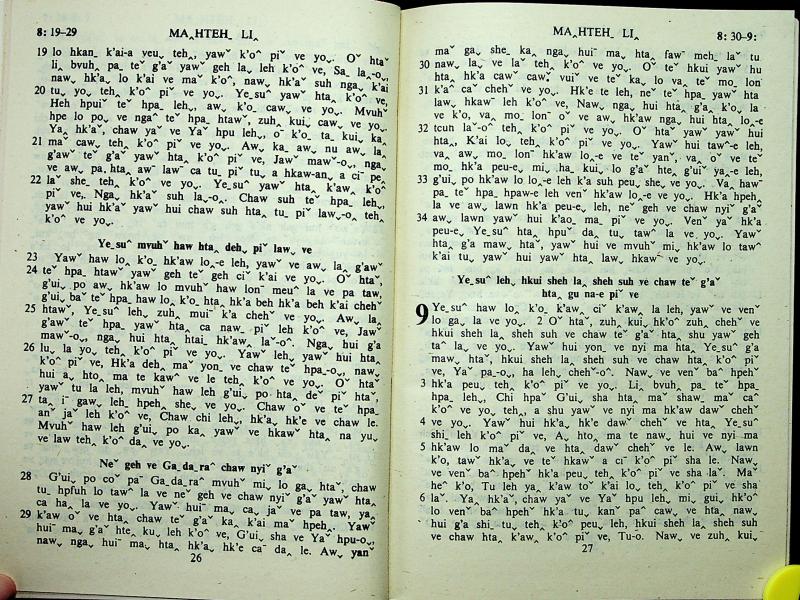 8: 19–29
MA‸HTEHˍ LI‸
19 lo hkanˍ k'ai-a yeu⌄ teh‸, yawˇ k'o^ piˇ ve yo⌄. Oˇ htaˇ
li‸ bvuh‸ pa⌄ teˇ g'aˇ yawˇ geh la⌄ leh k'o^ ve, Saˍ la⌄-o⌄,
naw⌄ hk'a⌄ lo k'ai ve maˇ k'o^, naw⌄ hk'aˇ suh nga⌄ k'ai
20 tu⌄ yo⌄ teh‸ k'o^ piˇ ve yo⌄. Yeˍsuˇ yawˇ hta‸ k'o^ ve,
Heh hpuiˇ teˇ hpa⌄ leh⌄, aw⌄ k'o⌄ caw⌄ ve yo⌄. Mvuhˇ
hpe lo po⌄ ve ngaˆ teˇ hpa⌄ htawˇ, zuh‸ kui⌄ caw⌄ ve yo⌄.
Ya‸ hk'aˇ, chaw yaˇ ve Yaˇ hpu leh⌄, oˉ k'o⌄ ta‸ kui⌄ ka⌄
21 maˇ caw⌄ teh‸ k'o^ piˇ ve yo⌄. Aw⌄ ka⌄ aw⌄ nu aw⌄ la‸
g'awˇ teˇ g'aˇ yawˇ hta‸ k'o^ piˇ ve, Jawˇ mawˇ-o⌄, nga⌄
ve aw⌄ pa⌄ hta‸ awˇ lawˇ ca⌄ tuˍ piˇ tu⌄, a hkaw-an⌄ a ciˉ pe⌄
22 laˇ she⌄ teh‸ k'o^ ve yo⌄. Yeˍsuˇ yawˇ hta‸ k'aw‸ k'o^
piˇ ve, Nga⌄ hk'aˇ suh la⌄-o⌄. Chaw suh teˇ hpa⌄ leh⌄,
yawˇ hui hk'aˇ yawˇ hui chaw suh hta‸ tu⌄ piˇ law⌄-o⌄ teh‸
k'o^ ve yo⌄.
Yeˍsuˆ mvuhˇ haw hta‸ deh⌄ piˇ law⌄ ve
23 Yawˇ haw lo⌄ k'o⌄ hk'aw lo‸-e leh, yawˇ ve aw⌄ la‸ g'awˇ
24 teˇ hpa⌄ htawˇ yawˇ geh teˇ geh ciˇ k'ai ve yo⌄. Oˇ htaˇ,
g'ui⌄ po aw⌄ hk'aw lo mvuhˇ haw lonˉ meuˆ la ve pa taw⌄
g'ui⌄ baˇ teˇ hpa⌄ haw lo⌄ k'o⌄ hta‸ hk'a beh hk'a beh k'ai chehˇ
25 htawˇ, Yeˍsuˆ leh⌄ zuh‸ muiˉ k'a chehˇ ve yo⌄. Aw⌄ la‸
g'awˇ teˇ hpa⌄ yawˇ hta‸ ca nawˍ piˇ leh k'o^ ve, Jawˇ
mawˇ-o⌄, nga⌄ hui hta‸ htai‸ hk'aw⌄ laˇ-oˇ. Nga⌄ hui g'a
26 lu⌄ la yo⌄ teh‸ k'o^ piˇ ve yo⌄. Yawˇ leh⌄ yawˇ hui hta‸
k'o^ piˇ ve, Hk'a deh‸ maˇ yon⌄ ve chaw teˇ hpa⌄-o⌄, naw⌄
hui a⌄ hto⌄ ma te kawˇ ve le teh‸ k'o^ ve yo⌄. Oˇ htaˇ
yawˇ tu la leh⌄ mvuhˇ haw leh g'ui⌄ po hta‸ deˇ piˇ htaˇ,
27 ta‸ iˉ gaw⌄ leh⌄ hpeh‸ she⌄ ve yo⌄. Chaw oˇ ve teˇ hpa⌄
anˇ jaˇ leh k'o^ ve, Chaw chi leh⌄ hk'a⌄ hk'e ve chaw le.
Mvuhˇ haw leh g'ui⌄ po ka⌄ yawˇ ve hkawˇ hta‸ na yu⌄
ve law teh‸ k'o^ da‸ ve yo⌄.
Neˇ geh ve Gaˍdaˍraˆ chaw nyiˇ g'aˇ
28 G'ui⌄ po coˇ paˉ Gaˍdaˍraˆ mvuhˇ mi⌄ lo ga⌄ htaˇ, chaw
tu⌄ hpfuh lo tawˇ la ve neˇ geh ve chaw nyiˇ g'aˇ yawˇ hta‸
ca ha⌄ la ve yo⌄. Yawˇ huiˉ ma⌄ ca⌄ jaˇ ve pa taw⌄ ya‸
29 k'aw oˇ ve hta‸ chaw teˇ g'aˇ ka⌄ k'ai maˇ hpeh‸. Yawˇ
huiˉ ma⌄ g'aˇ hte‸ ku⌄ leh k'o^ ve, G'ui⌄ sha ve Yaˇ hpu-o⌄,
naw⌄ nga⌄ huiˉ ma⌄ hta‸ hk'a⌄ hk'e caˉ da‸ le. Aw⌄ yanˇ
26
MA‸HTEHˍ LI‸
8: 30–9:
maˇ ga⌄ she⌄ ka⌄ nga⌄ huiˉ ma⌄ hta‸ fawˇ mehˍ laˇ tu
30 naw⌄ la⌄ ve laˇ teh‸ k'o^ ve yo⌄. Oˇ teˇ hkui yawˇ hu
hta‸ hk'a cawˇ caw⌄ vuiˇ ve teˇ ka⌄ lo va⌄ teˇ mo⌄ lonˉ
31 k'a^ caˇ chehˇ ve yo⌄. Hk'e te leh, neˇ teˇ hpa⌄ yawˇ hta
law⌄ hkawˉ leh k'o^ ve, Naw⌄ nga⌄ hui hta‸ g'a‸ k'o⌄ la
ve k'o, va⌄ mo⌄ lonˉ oˇ ve aw⌄ hk'aw nga⌄ hui hta‸ lo‸-e
32 tcun laˇ-oˆ teh‸ k'o^ piˇ ve yo⌄. Oˇ htaˇ yawˇ yawˇ hui
hta‸, K'ai lo⌄ teh‸ k'o^ piˇ ve yo⌄. Yawˇ hui tawˆ-e leh,
va⌄ aw⌄ mo⌄ lonˉ hk'aw lo‸-e ve teˇ yanˇ, va⌄ oˇ ve teˇ
mo⌄ hk'a peu-e⌄ mi⌄ ha⌄ kui⌄ lo g'aˇ hte‸ g'uiˇ ya‸-e leh,
33 g'ui⌄ po hk'aw lo lo‸-e leh k'a suh peu⌄ she⌄ ve yo⌄. Va⌄ hawˇ
pa⌄ teˇ hpa⌄ hpaw-e leh venˇ hk'aw lo‸-e ve yo⌄. Hk'a hpeh‸
la ve aw⌄ lawn hk'a peu-e⌄ leh, neˇ geh ve chaw nyiˇ g'aˇ
34 aw⌄ lawn yawˇ hui k'ao⌄ ma⌄ piˇ ve yo⌄. Venˇ yaˇ hk'a
peu-e⌄ Yeˍsuˆ hta‸ hpuˇ da‸ tu⌄ taw⌄ la ve yo⌄. Yawˇ
hta‸ g'a mawˇ htaˇ, yawˇ hui ve mvuhˇ mi⌄ hk'aw lo tawˇ
k'ai tu⌄ yawˇ hui yawˇ hta‸ law⌄ hkawˇ ve yo⌄.
Yeˍsuˆ leh⌄ hkui sheh la‸ sheh suh ve chaw teˇ g'aˇ
hta‸ gu na-e piˇ ve
9 Yeˍsuˆ haw lo⌄ k'o⌄ k'aw⌄ ciˇ k'aw‸ la leh, yawˇ ve venˇ
lo ga⌄ la ve yo⌄. 2 Oˇ htaˇ, zuh‸ kui⌄ hk'oˇ zuh‸ chehˇ ve
hkui sheh la‸ sheh suh ve chaw teˇ g'aˇ hta‸ shu yawˇ geh
taˆ la⌄ ve yo⌄. Yawˇ hui yon⌄ ve nyi ma hta‸ Yeˍsuˆ g'a
mawˇ htaˇ, hkui sheh la‸ sheh suh ve chaw hta‸ k'o^ piˇ
ve, Yaˇ pa⌄-o⌄, ha leh⌄ chehˇ-oˆ. Naw⌄ ve venˇ baˆ hpehˇ
3 hk'a peu⌄ teh‸ k'o^ piˇ ve yo⌄. Li⌄ bvuh‸ pa⌄ teˇ hpa⌄
hpa⌄ leh⌄, Chi hpaˇ G'ui⌄ sha hta‸ maˇ shaw⌄ maˇ ca⌄
k'o^ ve yo⌄ teh‸, a shu yawˇ ve nyi ma hk'aw dawˇ chehˇ
4 ve yo⌄. Yawˇ hui hk'a⌄ hk'e dawˇ chehˇ ve hta‸ Yeˍsuˆ
shi⌄ leh k'o^ piˇ ve, A⌄ hto⌄ ma te naw⌄ hui ve nyi ma
5 hk'aw lo maˇ da‸ ve hta‸ dawˇ chehˇ ve le. Aw⌄ lawn
k'o⌄ tawˇ hk'a⌄ ve teˇ hkawˇ a ciˉ k'o^ piˇ sha le. Naw⌄
ve venˇ baˆ hpehˇ hk'a peu⌄ teh‸ k'o^ piˇ ve sha laˇ. Maˇ
heˇ k'o, Tu leh ya‸ k'aw toˇ k'ai lo⌄ teh‸ k'o^ piˇ ve sha
6 laˇ. Ya⌄ hk'aˇ, chaw yaˇ ve Yaˇ hpu leh⌄ mi⌄ gui⌄ hk'oˇ
lo venˇ baˆ hpehˇ hk'a tu⌄ kanˇ paˇ caw⌄ ve hta‸ naw⌄
hui g'a shi⌄ tu⌄ teh‸ k'o^ peu⌄ leh, hkui sheh la‸ sheh suh
ve chaw hta‸ k'aw‸ k'o^ piˇ ve, Tu-o. Naw⌄ ve zuh‸ kui⌄
27